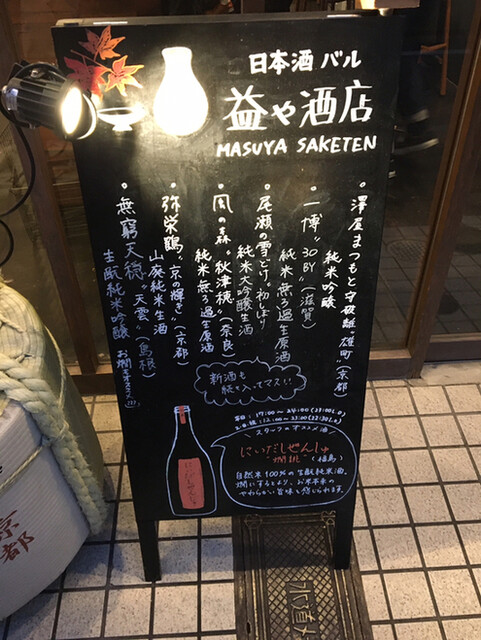 日本酒バル
益や酒店
MASUYA SAKETEN
・澤屋まつもと守破離"雄町"(京都)
純米吟醸
・一博"30BY"(滋賀)
純米無ろ過生原酒
・尾瀬の雪どけ"初しぼり"
純米大吟醸生酒
・風の森"秋津穂"(奈良)
純米無ろ過生原酒
・弥栄鶴"京の輝き"(京都)
山廃純米生酒
・無窮天穏"天雲"(島根)
生酛純米吟醸 お燗オススメ!!!
新酒も
続々入ってマス!
平日:17:00〜24:00(23:30L.O)
23:00(22:30L.O)
スタッフのオススメ酒
にいだしぜんしゅ
燗誂(福島)
自然米100%の生酛純米酒。
燗にするとより、お米本来の
やわらかい旨味も感じられます。
にいだしぜんしゅ
京都